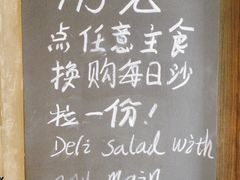 点任意主食
换购每日沙
拉一份！
Deli salad with
any main